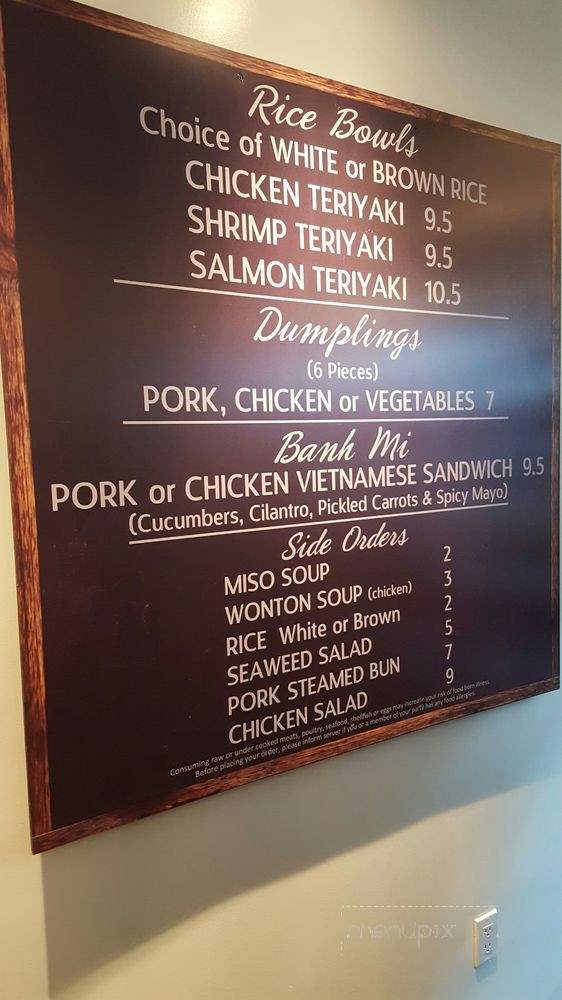 Rice Bowls
Choice of WHITE or BROWN RICE
CHICKEN TERIYAKI 9.5
SHRIMP TERIYAKI 9.5
SALMON TERIYAKI 10.5
Dumplings
(6 Pieces)
PORK, CHICKEN or VEGETABLES 7
Banh Mi
PORK or CHICKEN VIETNAMESE SANDWICH 9.5
(Cucumbers, Cilantro, Pickled Carrots & Spicy Mayo)
Side Orders
MISO SOUP 2
WONTON SOUP (chicken) 3
RICE White or Brown 2
SEAWEED SALAD 5
PORK STEAMED BUN 7
CHICKEN SALAD 9
Consuming raw or under cooked meats, poultry, seafood, shellfish or eggs may increase your risk of food born illness.
Before placing your order, please inform server if you or a member of your party has any food allergies.
menupix